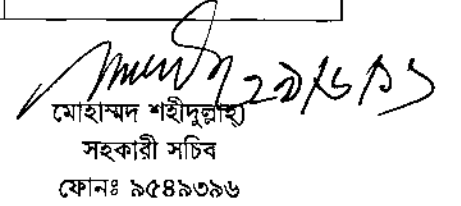 মোহাম্মদ শহীদুল্লাহ)
সহকারী সচিব
ফোনঃ ৯৫৪৯৩৯৬